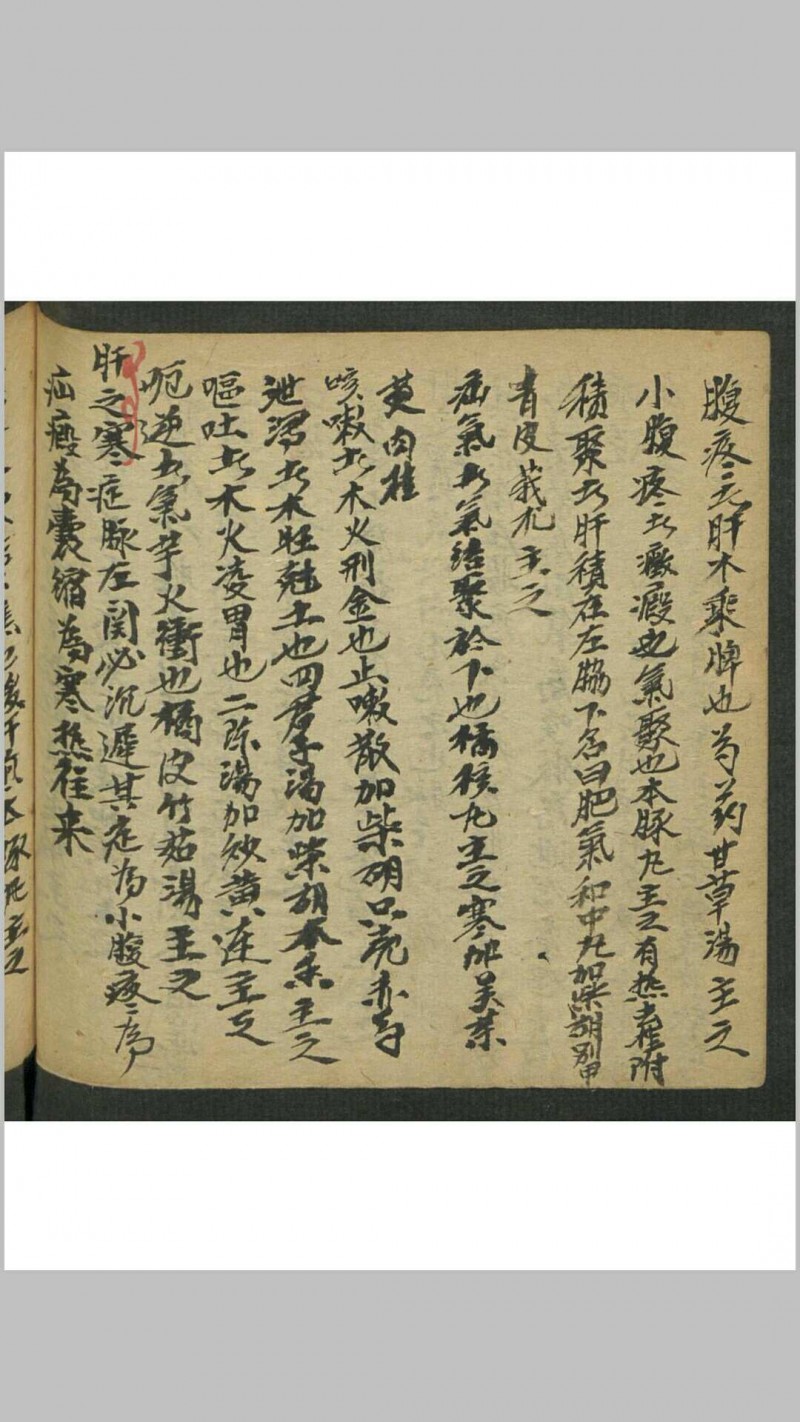 腹疼者肝木乘脾也芍药甘草湯主之
小腹疼者癥瘕也氣聚也本脉丸主之有热去桂附
積聚者肝積在左脇下名曰肥氣和中丸加柴胡別甲
青皮莪朮主之
疝氣者氣结聚於下也橘核丸主之寒加吴茱
萸肉桂
咳嗽者木火刑金也止嗽散加柴胡只壳赤芍
泄瀉者木旺尅土也四君子湯加柴胡木香主之
嘔吐者木火凌胃也二陈湯加炒黄連主之
呃逆者氣 火衝也橘皮竹茹湯主之
肝之寒症脉左関必沉遲其症為小腹疼為
疝瘕為囊縮為寒热往来